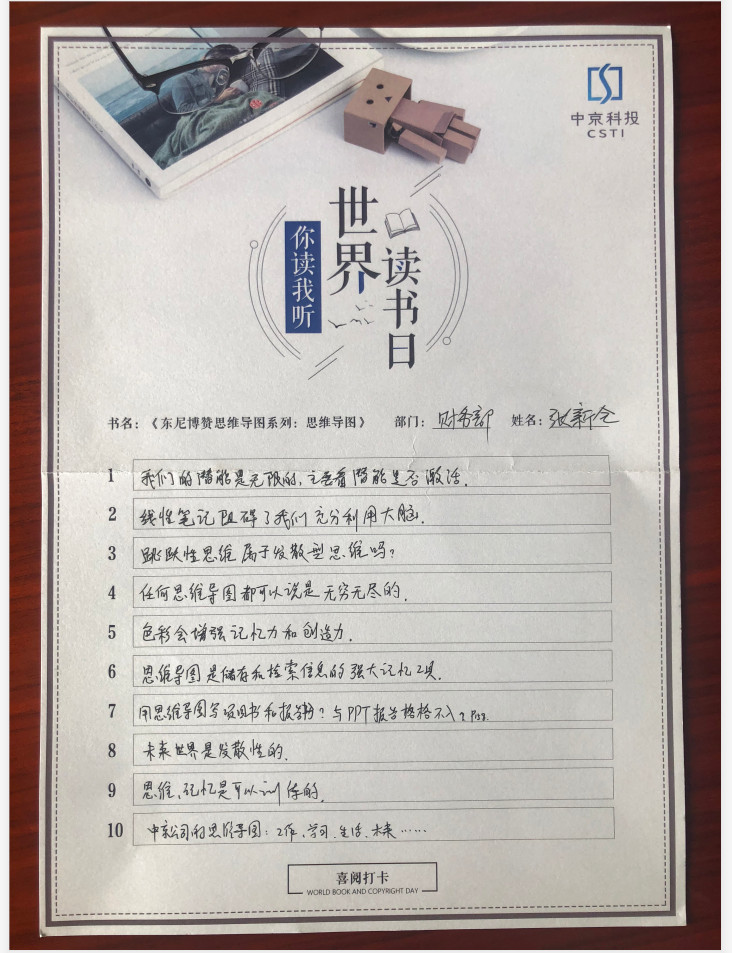 中京科投
CSTI
世界
读书日
你读我听
书名：《东尼博赞思维导图系列：思维导图》 部门：财务部 姓名：张新全
1 我们的潜能是无限的，主要看潜能是否激活．
2 线性笔记阻碍了我们充分利用大脑．
3 跳跃性思维属于发散型思维吗？
4 任何思维导图都可以说是无穷无尽的．
5 色彩会增强记忆力和创造力．
6 思维导图是储存和检索信息的强大记忆工具．
7 用思维导图写项目书和报告？与PPT报告格格不入？
8 未来世界是发散性的．
9 思维、记忆是可以训练的．
10 中京公司的思维导图：工作、学习、生活、未来……
喜阅打卡
WORLD BOOK AND COPYRIGHT DAY